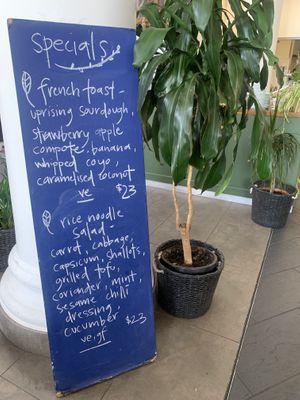 Specials
french toast -
uprising sourdough,
strawberry apple
compote, banana,
whipped coyo,
caramelised coconut
ve $23
rice noodle
salad -
carrot, cabbage,
capsicum, shallots,
grilled tofu,
coriander, mint,
sesame chilli
dressing
cucumber $23
ve, gf